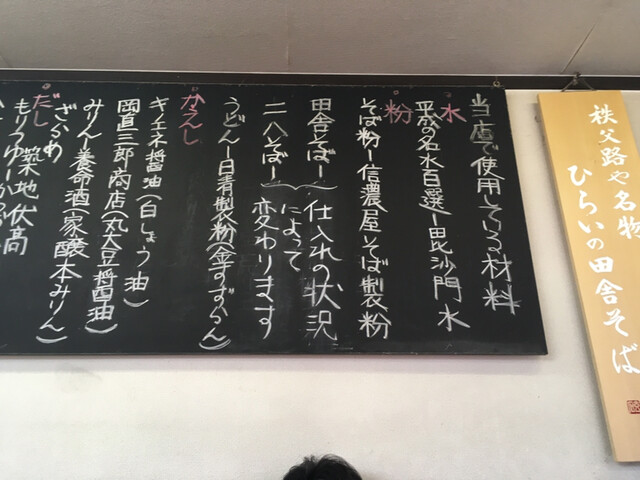 秩父路や名物
ひらいの田舎そば
当店で使用している材料
水
平成の名水百選ー毘沙門水
粉
そば粉ー信濃屋そば製粉
田舎そばー
二八そばー
仕入れの状況
によって
変わります
うどんー日清製粉(金すずらん)
かえし
キノエネ醤油(白しょう油)
岡直三郎商店(丸大豆醤油)
みりんー養命酒(家醸本みりん)
ざらめ
だし
築地伏高
もりつゆー